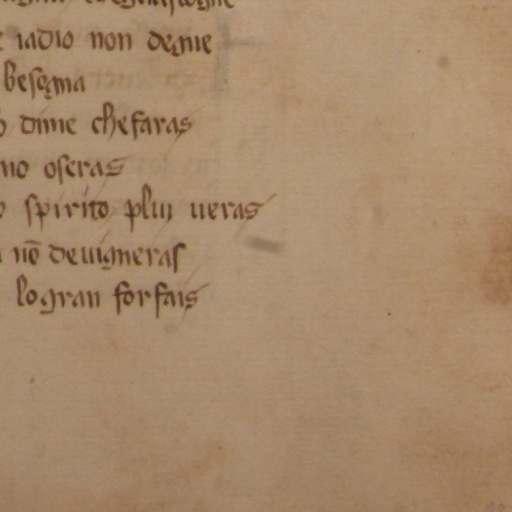 iadio non degne
besogna
dime che faras
no oseras
spirito plui ueras
nō deuigneras
lo gran forfais